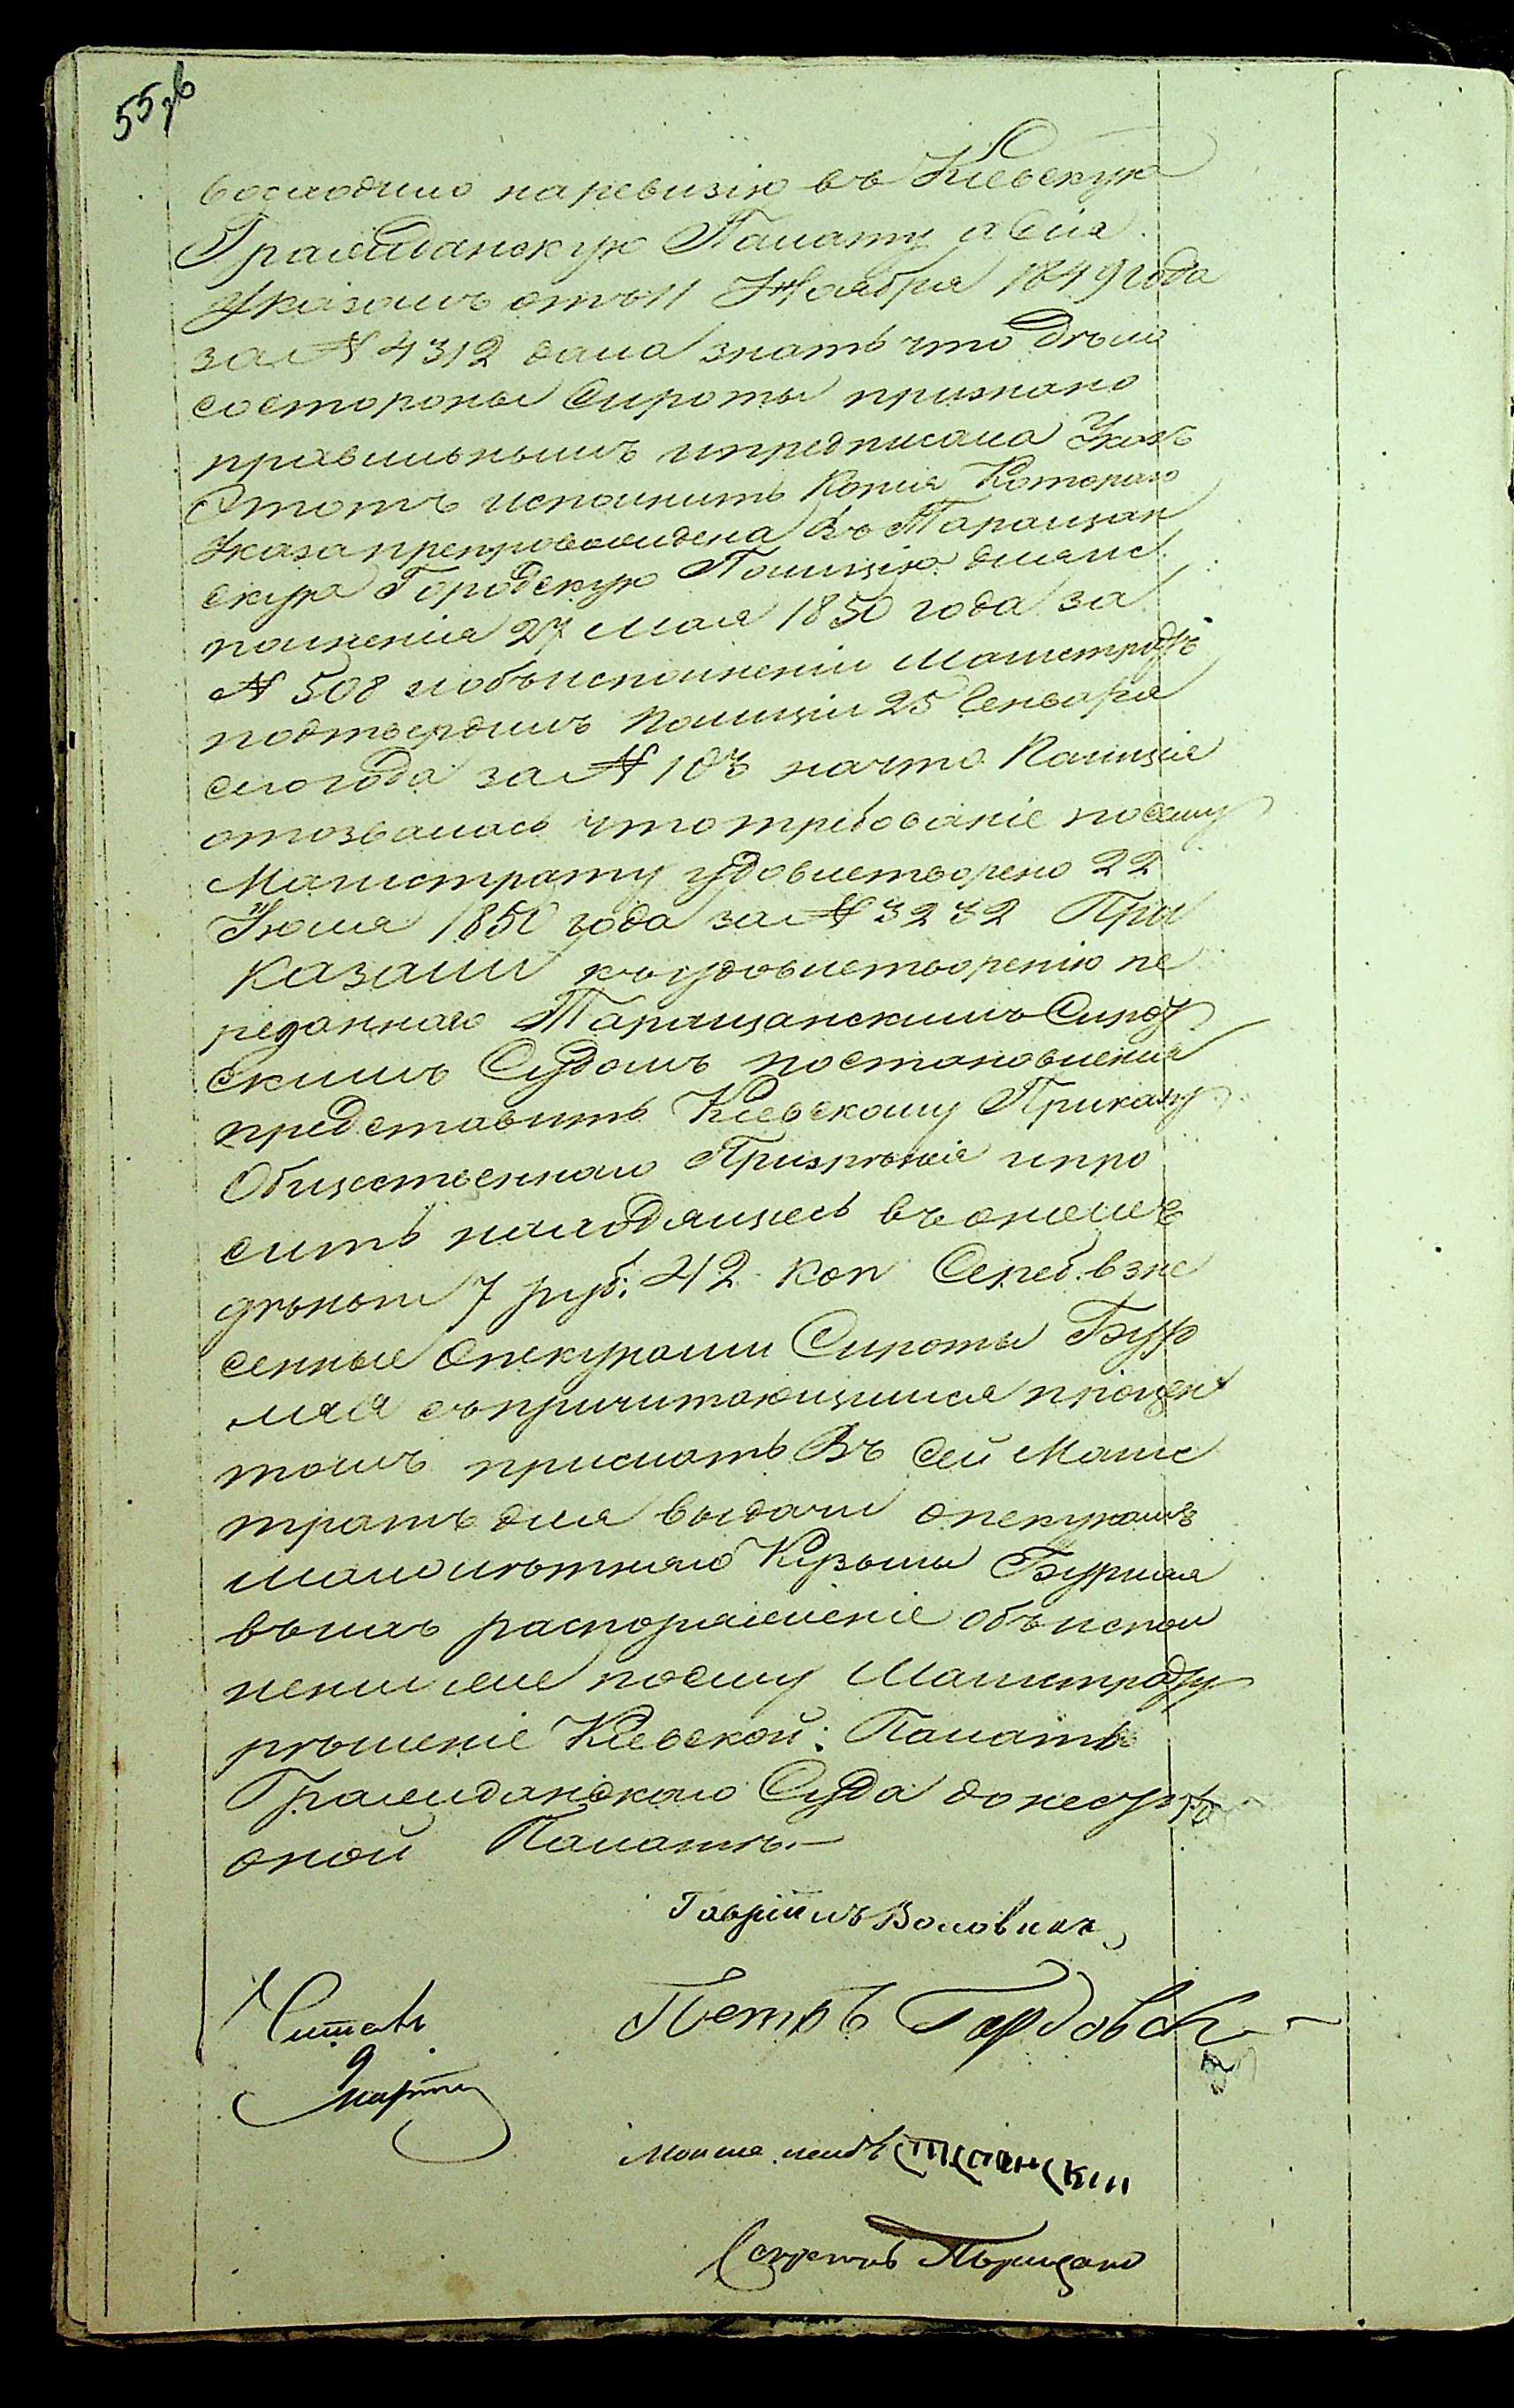 55,б
восходило наревизію въ Кіевскую
Гражданскую Палату а Сія
Указомъ отъ 11 Ноября 1849 года
за N 4312 дала знать что дѣло
состороны Сироты признано
правильнымъ ипредписала Указъ
Этотъ исполнить Копія Котораго
Указа препровождена Въ Таращан
скую Городскую Полицію дляис
полненія 27 Мая 1850 года за
N 508 иобъисполненіи Магистратъ
подтвердилъ Полиціи 25 Генваря
сегогода за N 103 начто Полиція
отозвалась чтотребованіе посему
Магистрату удовлетворено 22
Іюля 1850 года за N 3232 При
казали къудовлетворенію пе
реданнаго Таращанскимъ Сирот
скимъ Судомъ постановленія
представить Кіевскому Приказу
Общественнаго Призрѣнія ипро
сить находящіесь въономъ
деньги 7 руб: 42 коп Сереб. взне
сенные Опекунами Сироты Бур
мая съпричитающимися процен
томъ прислать Въ сей Магис
тратъ для выдачи опекунамъ
малолѣтняго Кузьмы Бурмая
въихъ распоряженіе объиспол
неніи же посему Магистрату
рѣшеніе Кіевской: Палаты
Гражданскаго Суда донесть
оной Палатѣ.—
Гавріилъ Воловикъ
Читалъ
Петръ Гордовск
Мошка лейбъ
Секретарь